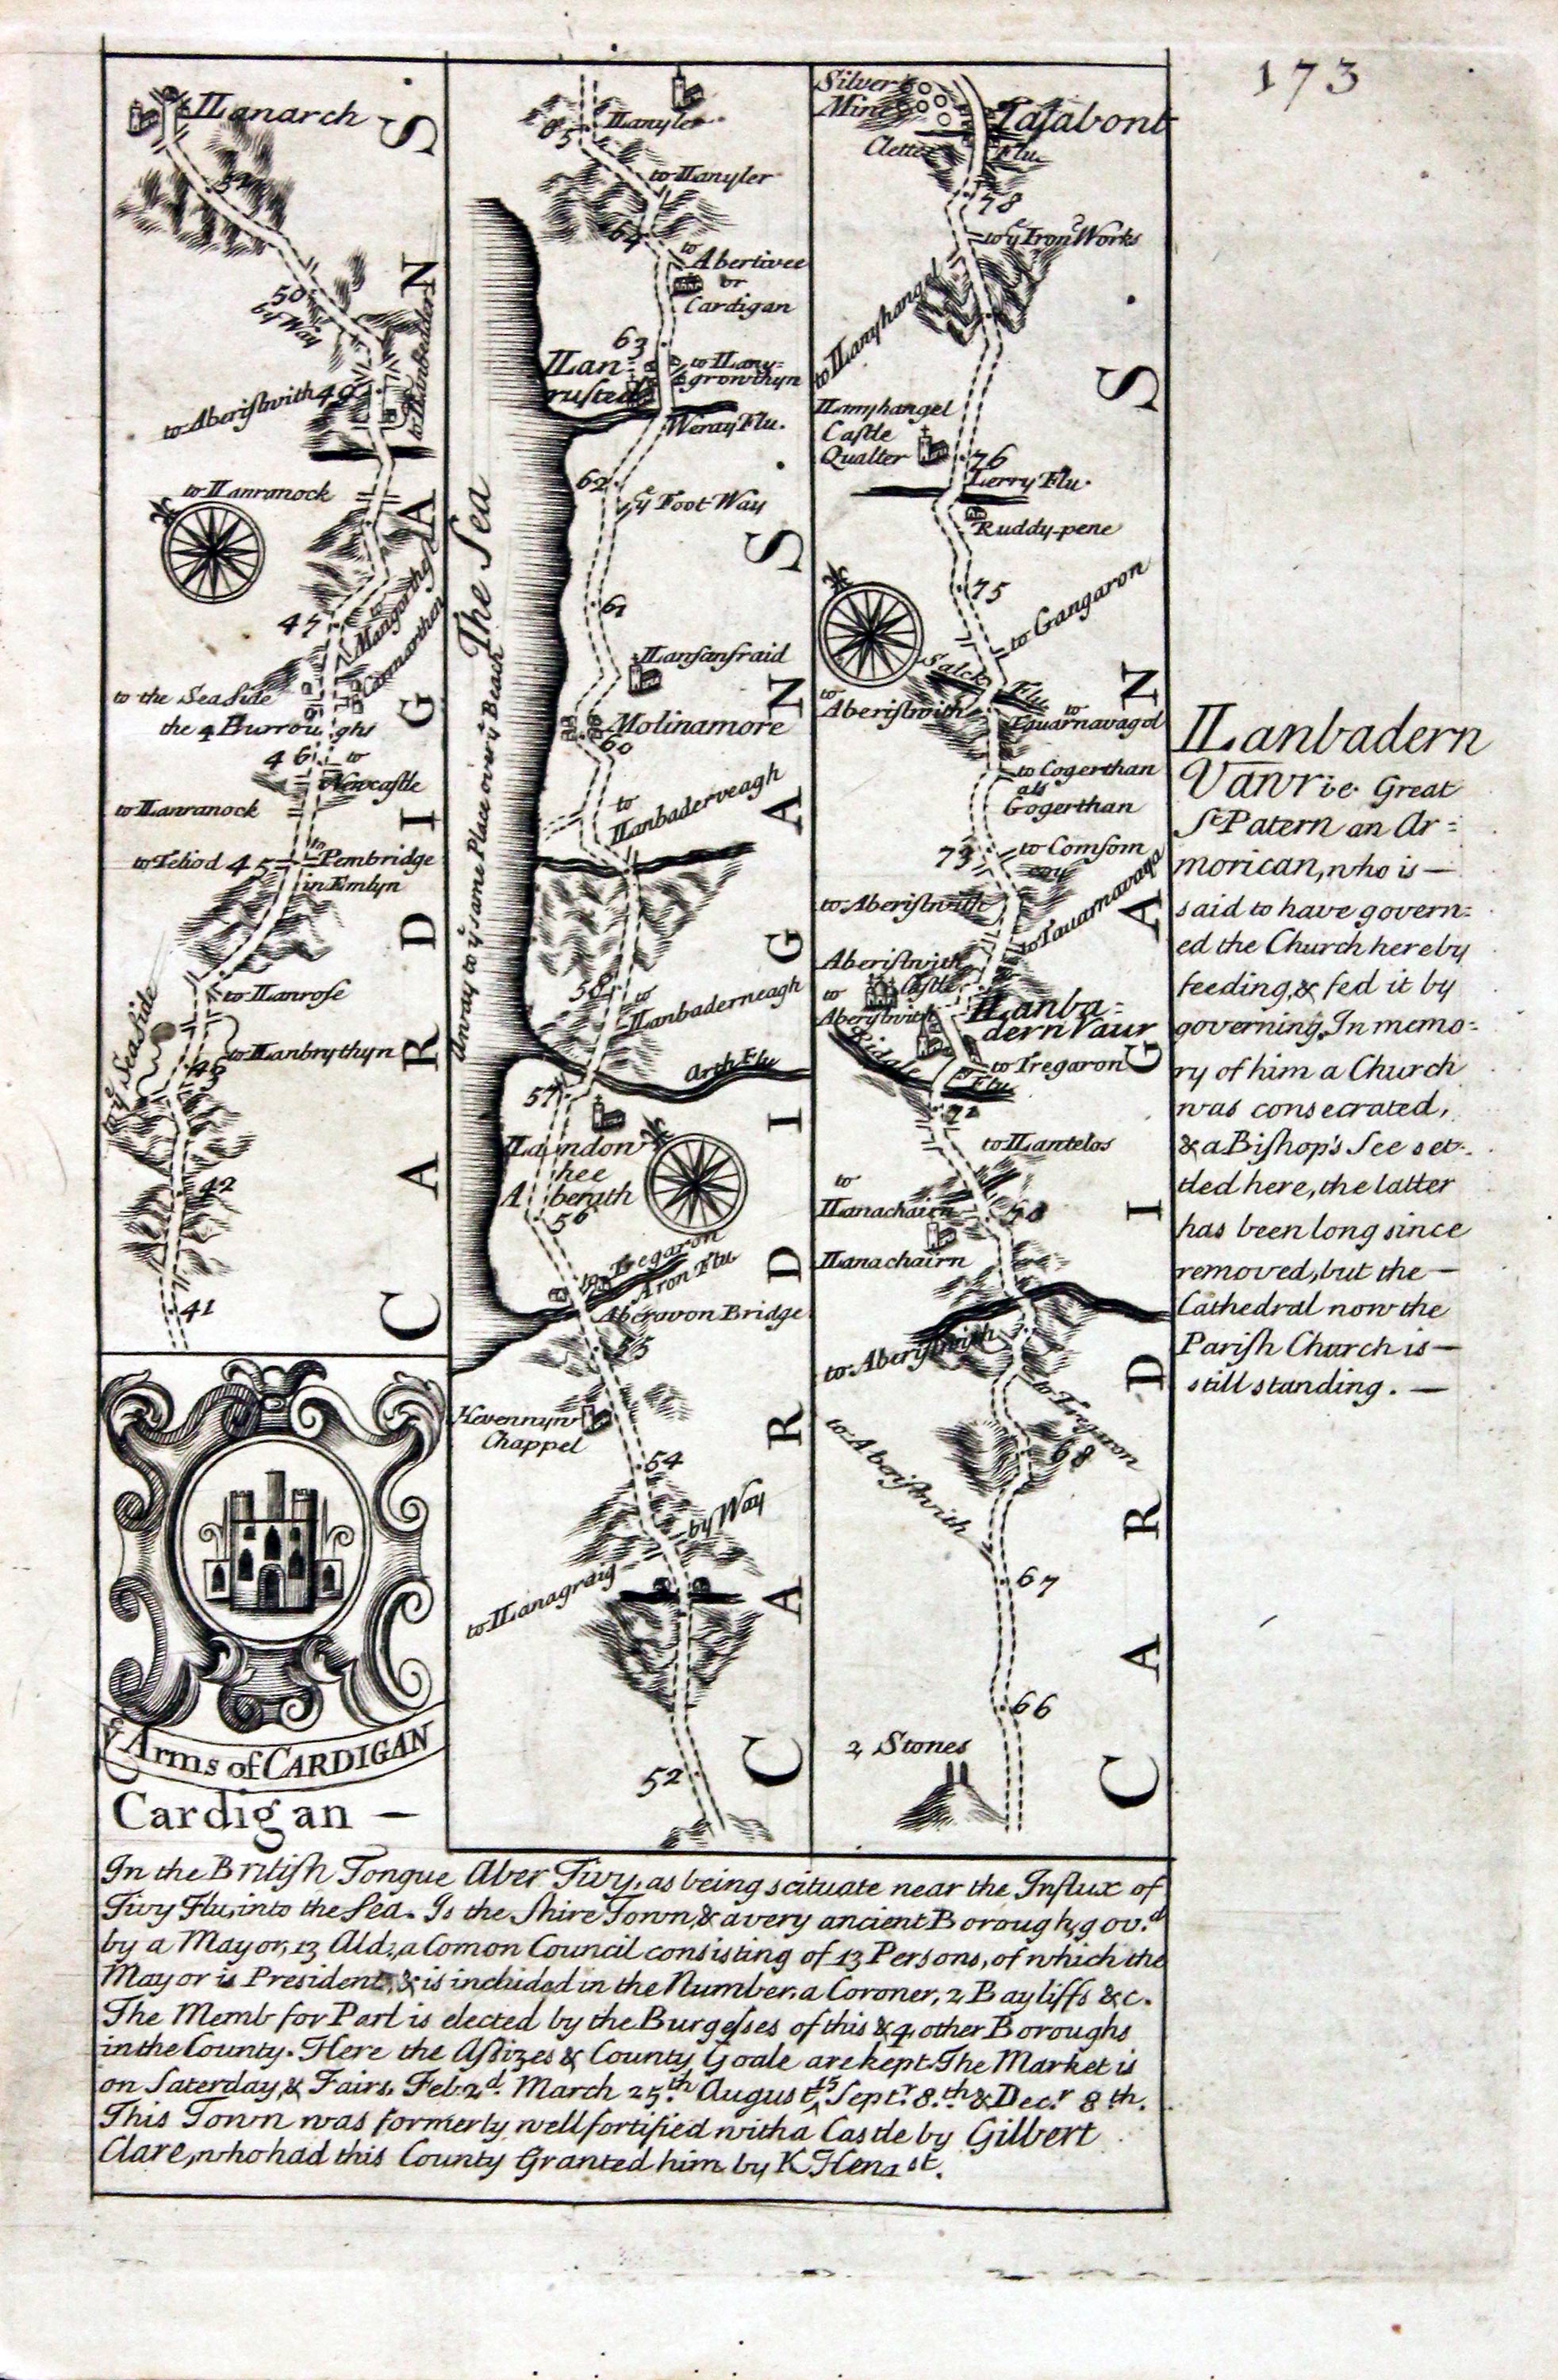 173
IILanarch
50
by Way
to Aberistwith 49
to IILanbeddern
to IILanranock
47
to Mangorthg
Carmarthen
to the Sea Side
the 4 Burroughs
46
to
Newcastle
to IILanranock
to Teliod 45
to
Pembridge
in Emlyn
to IILanrose
to IILanbrythyn
to ye Seaside
43
42
41
CARDIGANS.
ye Arms of CARDIGAN
65
IILanyler
to IILanyler
64
to
Abertivee
or
Cardigan
63
IILan-
rusted
to IILany-
growthyn
Weray Flu.
62
ye Foot Way
The Sea
61
IILansanfraid
Molinamore
60
to
IILanbaderveagh
Anway to ye same Place over ye Beach
58
to
IILanbaderneagh
Arth Flu
57
IILanndon
hee
Aberath
56
to Tregaron
Aron Flu
Aberavon Bridge
55
Hevennyn
Chappel
54
by Way
to IILanagraig
52
CARDIGANS.
Silver
Mines
Talabont
Cletter Flu.
78
to ye Iron Works
to IILanyhangel
IILanyhangel
Castle
Qualter
76
Lerry Flu.
Ruddy-pene
75
to Gangaron
Salck Flu
to
Aberistwith
to
Tguarnavagol
to Cogerthan
als
Gogerthan
73
to Comsom
coy
to Aberistwith
to Tauarnavaga
Aberistwith
Castle
to
Aberystwith
IILanba-
dern Vaur
to Tregaron
Ridal Flu
72
to IILantelos
to
IILanachairn
70
IILanachairn
to Aberystwith
to Tregaron
68
to Aberistwith
67
66
2 Stones
CARDIGANS.
IILanbadern
Vawr ie. Great
St Patern an Ar-
morican, who is —
said to have govern-
ed the Church hereby
feeding, & fed it by
governing. In memo-
ry of him a Church
was consecrated,
& a Bishop's See set-
tled here, the latter
has been long since
removed, but the —
Cathedral now the
Parish Church is —
still standing. —
Cardigan —
In the British Tongue Aber Tivy, as being scituate near the Influx of
Tivy Flu, into the Sea. Is the Shire Town, & a very ancient Borough, gov.d
by a Mayor, 13 Ald., a Comon Council consisting of 13 Persons, of which the
Mayor is President, & is included in the Number, a Coroner, 2 Bayliffs &c.
The Memb for Parl is elected by the Burgesses of this & 4 other Boroughs
in the County. Here the Assizes & County Goale are kept. The Market is
on Saterday, & Fairs, Feb. 2d. March 25th. August 15 Sept.r 8.th & Dec.r 8th.
This Town was formerly well fortified with a Castle by Gilbert
Clare, who had this County Granted him by K Hen 1st.